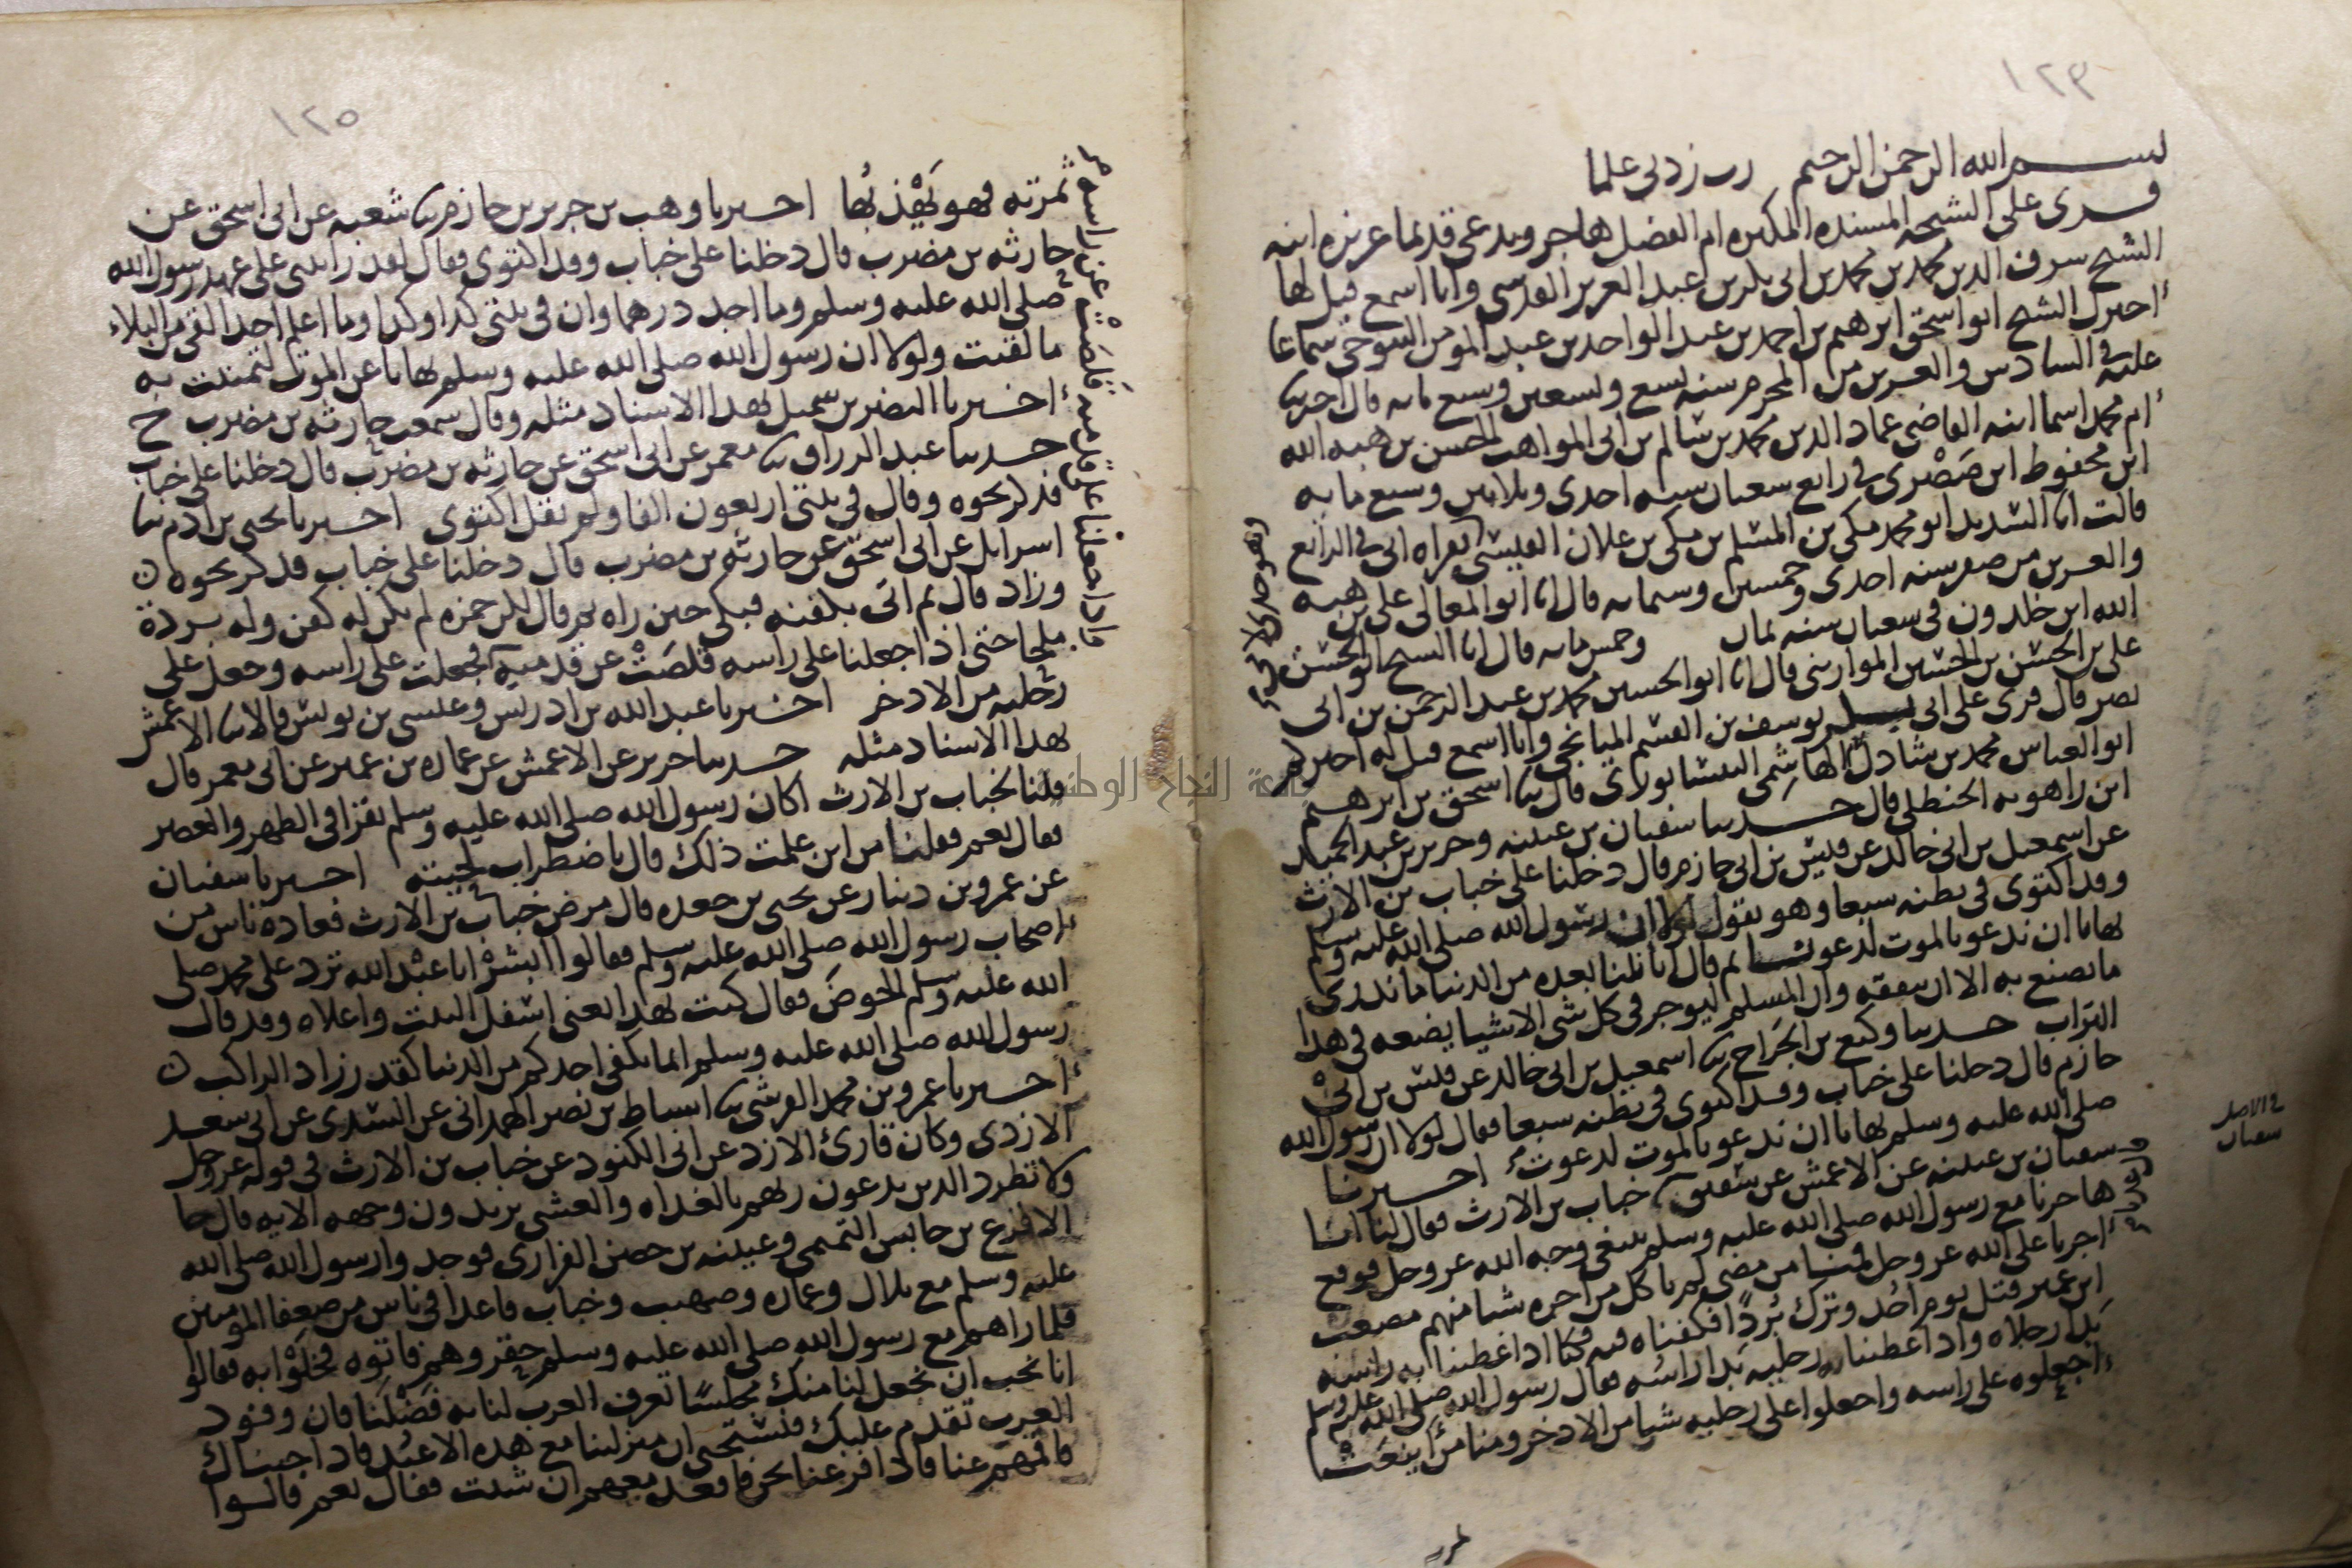 ١٢٣
بسم الله الرحمن الرحيم رب زدني علما
قرئ على الشيخه المسنده المكثره ام الفضل هاجر وتدعى قديما عزيزه ابنه
الشيخ شرف الدين محمد بن محمد بن ابي بكر بن عبد العزيز القدسي وانا اسمع قيل لها
اخبرك الشيخ ابو اسحق ابرهيم بن احمد بن عبد الواحد بن عبد المومن التنوخي سماعا
عليه في السادس والعشرين من المحرم سنه تسع وتسعين وسبع مايه قال اخبرتنا
ام محمد اسما ابنه القاضي عماد الدين محمد بن سالم بن ابي المواهب الحسن بن هبه الله
ابن محفوظ ابن صَصْرى في رابع شعبان سنه احدى وثلاثين وسبع مايه
قالت انا السديد ابو محمد مكي بن المسلم بن مكي بن علان القيسي قراه اني في الرابع
والعشرين من صفر سنه احدى وخمسين وستمايه قال انا ابو المعالي علي بن هبه
الله ابن خلدون في شعبان سنه ثمان وخمس مايه قال انا الشيخ ابو الحسن
علي بن الحسن بن الحسين الموازيني قال انا ابو الحسين محمد بن عبد الرحمن بن ابي
نصر قال قرئ على ابي بكر يوسف بن القسم الميانجي وانا اسمع قيل له اخبركم
ابو العباس محمد بن شادل الهاشمي النيسابوري قال ثنا اسحق بن ابرهيم
ابن راهويه الحنظلي قال حدثنا سفيان بن عيينه وجرير بن عبد الحميد
عن اسمعيل بن ابي خالد عن قيس بن ابي حازم قال دخلنا على خباب بن الارت
وقد اكتوى في بطنه سبعا وهو يقول لولا ان رسول الله صلى الله عليه وسلم
نهانا ان ندعو بالموت لدعوت به ثم قال انا نلنا بعده من الدنيا ما ندري
ما نصنع به الا ان ننفقه وان المسلم ليوجر في كل شي الا شيا يضعه في هذا
التراب حدثنا وكيع بن الجراح ثنا اسمعيل بن ابي خالد عن قيس بن ابي
حازم قال دخلنا على خباب وقد اكتوى في بطنه سبعا فقال لولا ان رسول الله
صلى الله عليه وسلم نهانا ان ندعو بالموت لدعوت اخبرنا
سفيان بن عيينه عن الاعمش عن شقيق ثنا خباب بن الارت فقال لنا انا
هاجرنا مع رسول الله صلى الله عليه وسلم نبتغي وجه الله عز وجل فوقع
اجرنا على الله عز وجل فمنا من مضى لم ياكل من اجره شيا منهم مصعب
ابن عمير قتل يوم احد وترك بُردًا فكفناه فيه فكنا اذا غطينا به راسه
بدا رجلاه واذا غطينا رجليه بدا راسه فقال رسول الله صلى الله عليه وسلم
اجعلوه على راسه واجعلوا على رجليه شيا من الاذخر ومنا من اينعت
في الاصل
سفيان
١٢٥
ثمرته فهو يَهْدِبُها اخبرنا وهب بن جرير بن حازم ثنا شعبه عن ابي اسحق عن
حارثه بن مضرب قال دخلنا على خباب وقد اكتوى فقال لقد رايتني على عهد رسول الله
صلى الله عليه وسلم وما اجد درهما وان في بيتي كذا وكذا وما اعلم احدا لقي من البلاء
ما لقيت ولولا ان رسول الله صلى الله عليه وسلم نهانا عن الموت لتمنيت به
اخبرنا النضر بن شميل بهذا الاسناد مثله وقال سمعت حارثه بن مضرب ح
حدثنا عبد الرزاق ثنا معمر عن ابي اسحق عن حارثه بن مضرب قال دخلنا على خباب
فذكر نحوه وقال في بيتي اربعون الفا ولم يقل اكتوى اخبرنا يحيى بن ادم ثنا
اسرايل عن ابي اسحق عن حارثه بن مضرب قال دخلنا على خباب فذكر نحوه
وزاد قال ثم اتى بكفنه فبكى حين راه ثم قال لكن حمزه لم يكن له كفن وله بردة
ملحا حتى اذا جعلنا على راسه قلصت عن قدميه فجعلت على راسه وجعل على
رجليه من الاذخر اخبرنا عبد الله بن ادريس وعيسى بن يونس قالا ثنا الاعمش
بهذا الاسناد مثله حدثنا جرير عن الاعمش عن عماره بن عمير عن ابي معمر قال
قلنا لخباب بن الارت اكان رسول الله صلى الله عليه وسلم يقرا في الظهر والعصر
فقال نعم فقلنا من اين علمت ذلك قال باضطراب لحيته اخبرنا سفيان
عن عمرو بن دينار عن يحيى بن جعده قال مرض خباب بن الارت فعاده ناس من
اصحاب رسول الله صلى الله عليه وسلم فقالوا ابشر ابا عبد الله ترد على محمد صلى
الله عليه وسلم الحوض فقال كيف بهذا يعني اسفل البيت واعلاه وقد قال
رسول الله صلى الله عليه وسلم انما يكفي احدكم من الدنيا كقدر زاد الراكب
اخبرنا عمرو بن محمد القرشي ثنا اسباط بن نصر الهمداني عن السدي عن ابي سعد
الازدي وكان قارئ الازد عن ابي الكنود عن خباب بن الارت في قوله عز وجل
ولا تطرد الذين يدعون ربهم بالغداه والعشي يريدون وجهه الايه قال جا
الاقرع بن حابس التميمي وعيينه بن حصن الفزاري فوجدوا رسول الله صلى الله
عليه وسلم مع بلال وعمار وصهيب وخباب قاعدا في ناس من ضعفا المومنين
فلما راهم مع رسول الله صلى الله عليه وسلم حقروهم فاتوه فخلوا به فقالوا
انا نحب ان تجعل لنا منك مجلسًا تعرف العرب لنا به فضلنا فان وفود
العرب تقدم عليك فنستحي ان منزلنا مع هذه الاعبد فاذا جيناك
فاقمهم عنا فاذا فرغنا نحن فاقعد معهم ان شيت فقال نعم قالوا
جامعة النجاح الوطنية